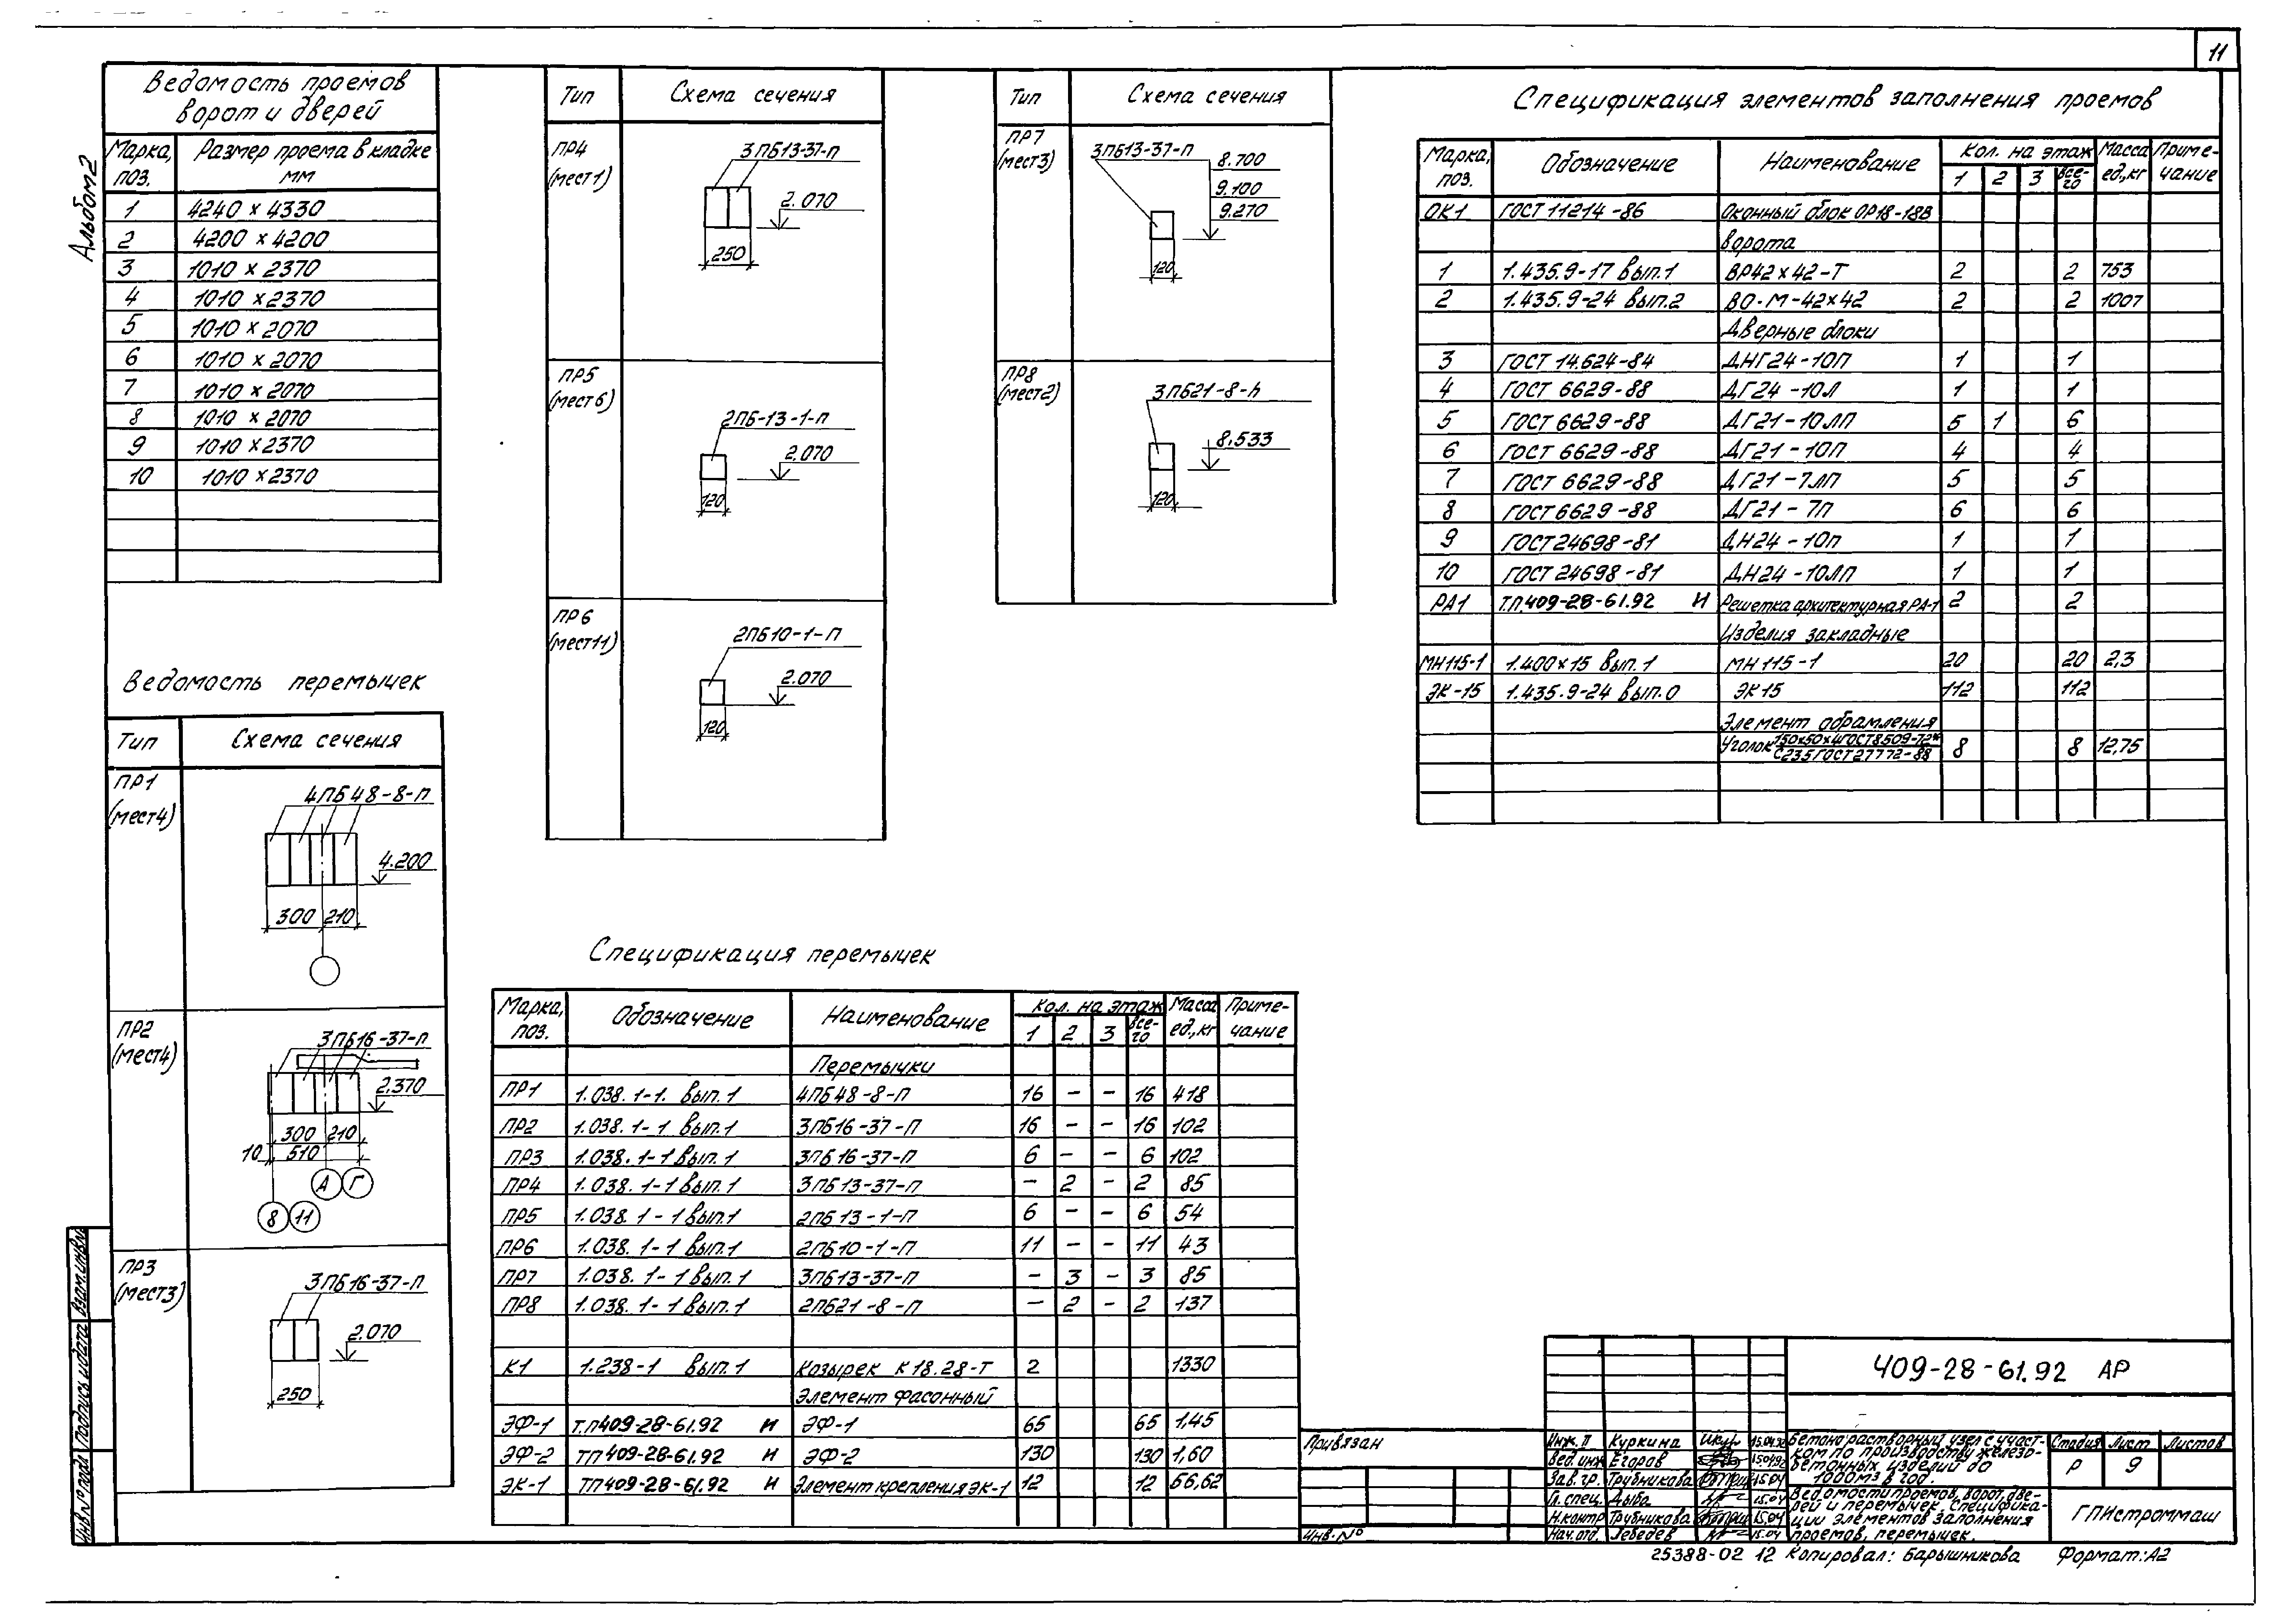 11
Альбом 2
Ведомость проемов
ворот и дверей
Марка, поз. | Размер проема в кладке мм
1 | 4240 x 4330
2 | 4200 x 4200
3 | 1010 x 2370
4 | 1010 x 2370
5 | 1010 x 2070
6 | 1010 x 2070
7 | 1010 x 2070
8 | 1010 x 2070
9 | 1010 x 2370
10 | 1010 x 2370
Ведомость перемычек
Тип | Схема сечения
ПР1
(мест4)
4ПБ48-8-П
4.200
300 210
ПР2
(мест4)
3ПБ16-37-П
2.370
300 210
10 510
А Г
8 11
ПР3
(мест3)
3ПБ16-37-П
2.070
250
Тип | Схема сечения
ПР4
(мест1)
3ПБ13-37-П
2.070
250
ПР5
(мест6)
2ПБ-13-1-П
2.070
120
ПР6
(мест11)
2ПБ10-1-П
2.070
120
Тип | Схема сечения
ПР7
(мест3)
3ПБ13-37-П
8.700
9.100
9.270
120
ПР8
(мест2)
3ПБ21-8-П
8.533
120
Спецификация элементов заполнения проемов
Марка, поз. | Обозначение | Наименование | Кол. на этаж | Масса ед., кг | Примечание
1 | 2 | 3 | все-го
ОК1 | ГОСТ 11214-86 | Оконный блок ОР18-18В
Ворота
1 | 1.435.9-17 Вып.1 | ВР42x42-Т | 2 | 2 | 753
2 | 1.435.9-24 Вып.2 | ВО-М-42x42 | 2 | 2 | 1007
Дверные блоки
3 | ГОСТ 14.624-84 | ДНГ24-10П | 1 | 1
4 | ГОСТ 6629-88 | ДГ24-10Л | 1 | 1
5 | ГОСТ 6629-88 | ДГ21-10ЛП | 5 | 1 | 6
6 | ГОСТ 6629-88 | ДГ21-10П | 4 | 4
7 | ГОСТ 6629-88 | ДГ21-7ЛП | 5 | 5
8 | ГОСТ 6629-88 | ДГ21-7П | 6 | 6
9 | ГОСТ 24698-81 | ДН24-10П | 1 | 1
10 | ГОСТ 24698-81 | ДН24-10ЛП | 1 | 1
РА1 | Т.П.409-28-61.92 И | Решетка архитектурная РА-1 | 2 | 2
Изделия закладные
МН115-1 | 1.400x15 Вып.1 | МН115-1 | 20 | 20 | 2,3
ЭК-15 | 1.435.9-24 Вып.0 | ЭК15 | 112 | 112
Элемент обрамления
Уголок 150x50x4 ГОСТ 8509-72* / С235 ГОСТ 27772-88 | 8 | 8 | 12,75
Спецификация перемычек
Марка, поз. | Обозначение | Наименование | Кол. на этаж | Масса ед., кг | Примечание
1 | 2 | 3 | все-го
Перемычки
ПР1 | 1.038.1-1. Вып.1 | 4ПБ48-8-П | 16 | - | - | 16 | 418
ПР2 | 1.038.1-1 Вып.1 | 3ПБ16-37-П | 16 | - | - | 16 | 102
ПР3 | 1.038.1-1 Вып.1 | 3ПБ16-37-П | 6 | - | - | 6 | 102
ПР4 | 1.038.1-1 Вып.1 | 3ПБ13-37-П | - | 2 | - | 2 | 85
ПР5 | 1.038.1-1 Вып.1 | 2ПБ13-1-П | 6 | - | - | 6 | 54
ПР6 | 1.038.1-1 Вып.1 | 2ПБ10-1-П | 11 | - | - | 11 | 43
ПР7 | 1.038.1-1 Вып.1 | 3ПБ13-37-П | - | 3 | - | 3 | 85
ПР8 | 1.038.1-1 Вып.1 | 2ПБ21-8-П | - | 2 | - | 2 | 137
К1 | 1.238-1 Вып.1 | Козырек К18.28-Т | 2 | 1330
Элемент фасонный
ЭФ-1 | Т.П409-28-61.92 И | ЭФ-1 | 65 | 65 | 1,45
ЭФ-2 | ТП409-28-61.92 И | ЭФ-2 | 130 | 130 | 1,60
ЭК-1 | ТП409-28-61.92 И | Элемент крепления ЭК-1 | 12 | 12 | 66,62
Взам.инв.№
Подпись и дата
Инв.№ подл
Привязан
Инв.№
409-28-61.92 АР
Инж. II | Куркина | 15.04.92
Вед. инж | Егоров | 15.04.92
Зав. гр. | Трубникова | 15.04
Гл. спец. | Дыба | 15.04
Н.контр | Трубникова | 15.04
Нач. отд. | Лебедев | 15.04
Бетонорастворный узел с участ-
ком по производству железо-
бетонных изделий до
1000м3 в год
Стадия | Лист | Листов
Р | 9
Ведомости проемов, ворот, две-
рей и перемычек. Специфика-
ции элементов заполнения
проемов, перемычек.
ГПИстроммаш
25388-02 12 Копировал: Барышникова Формат: А2